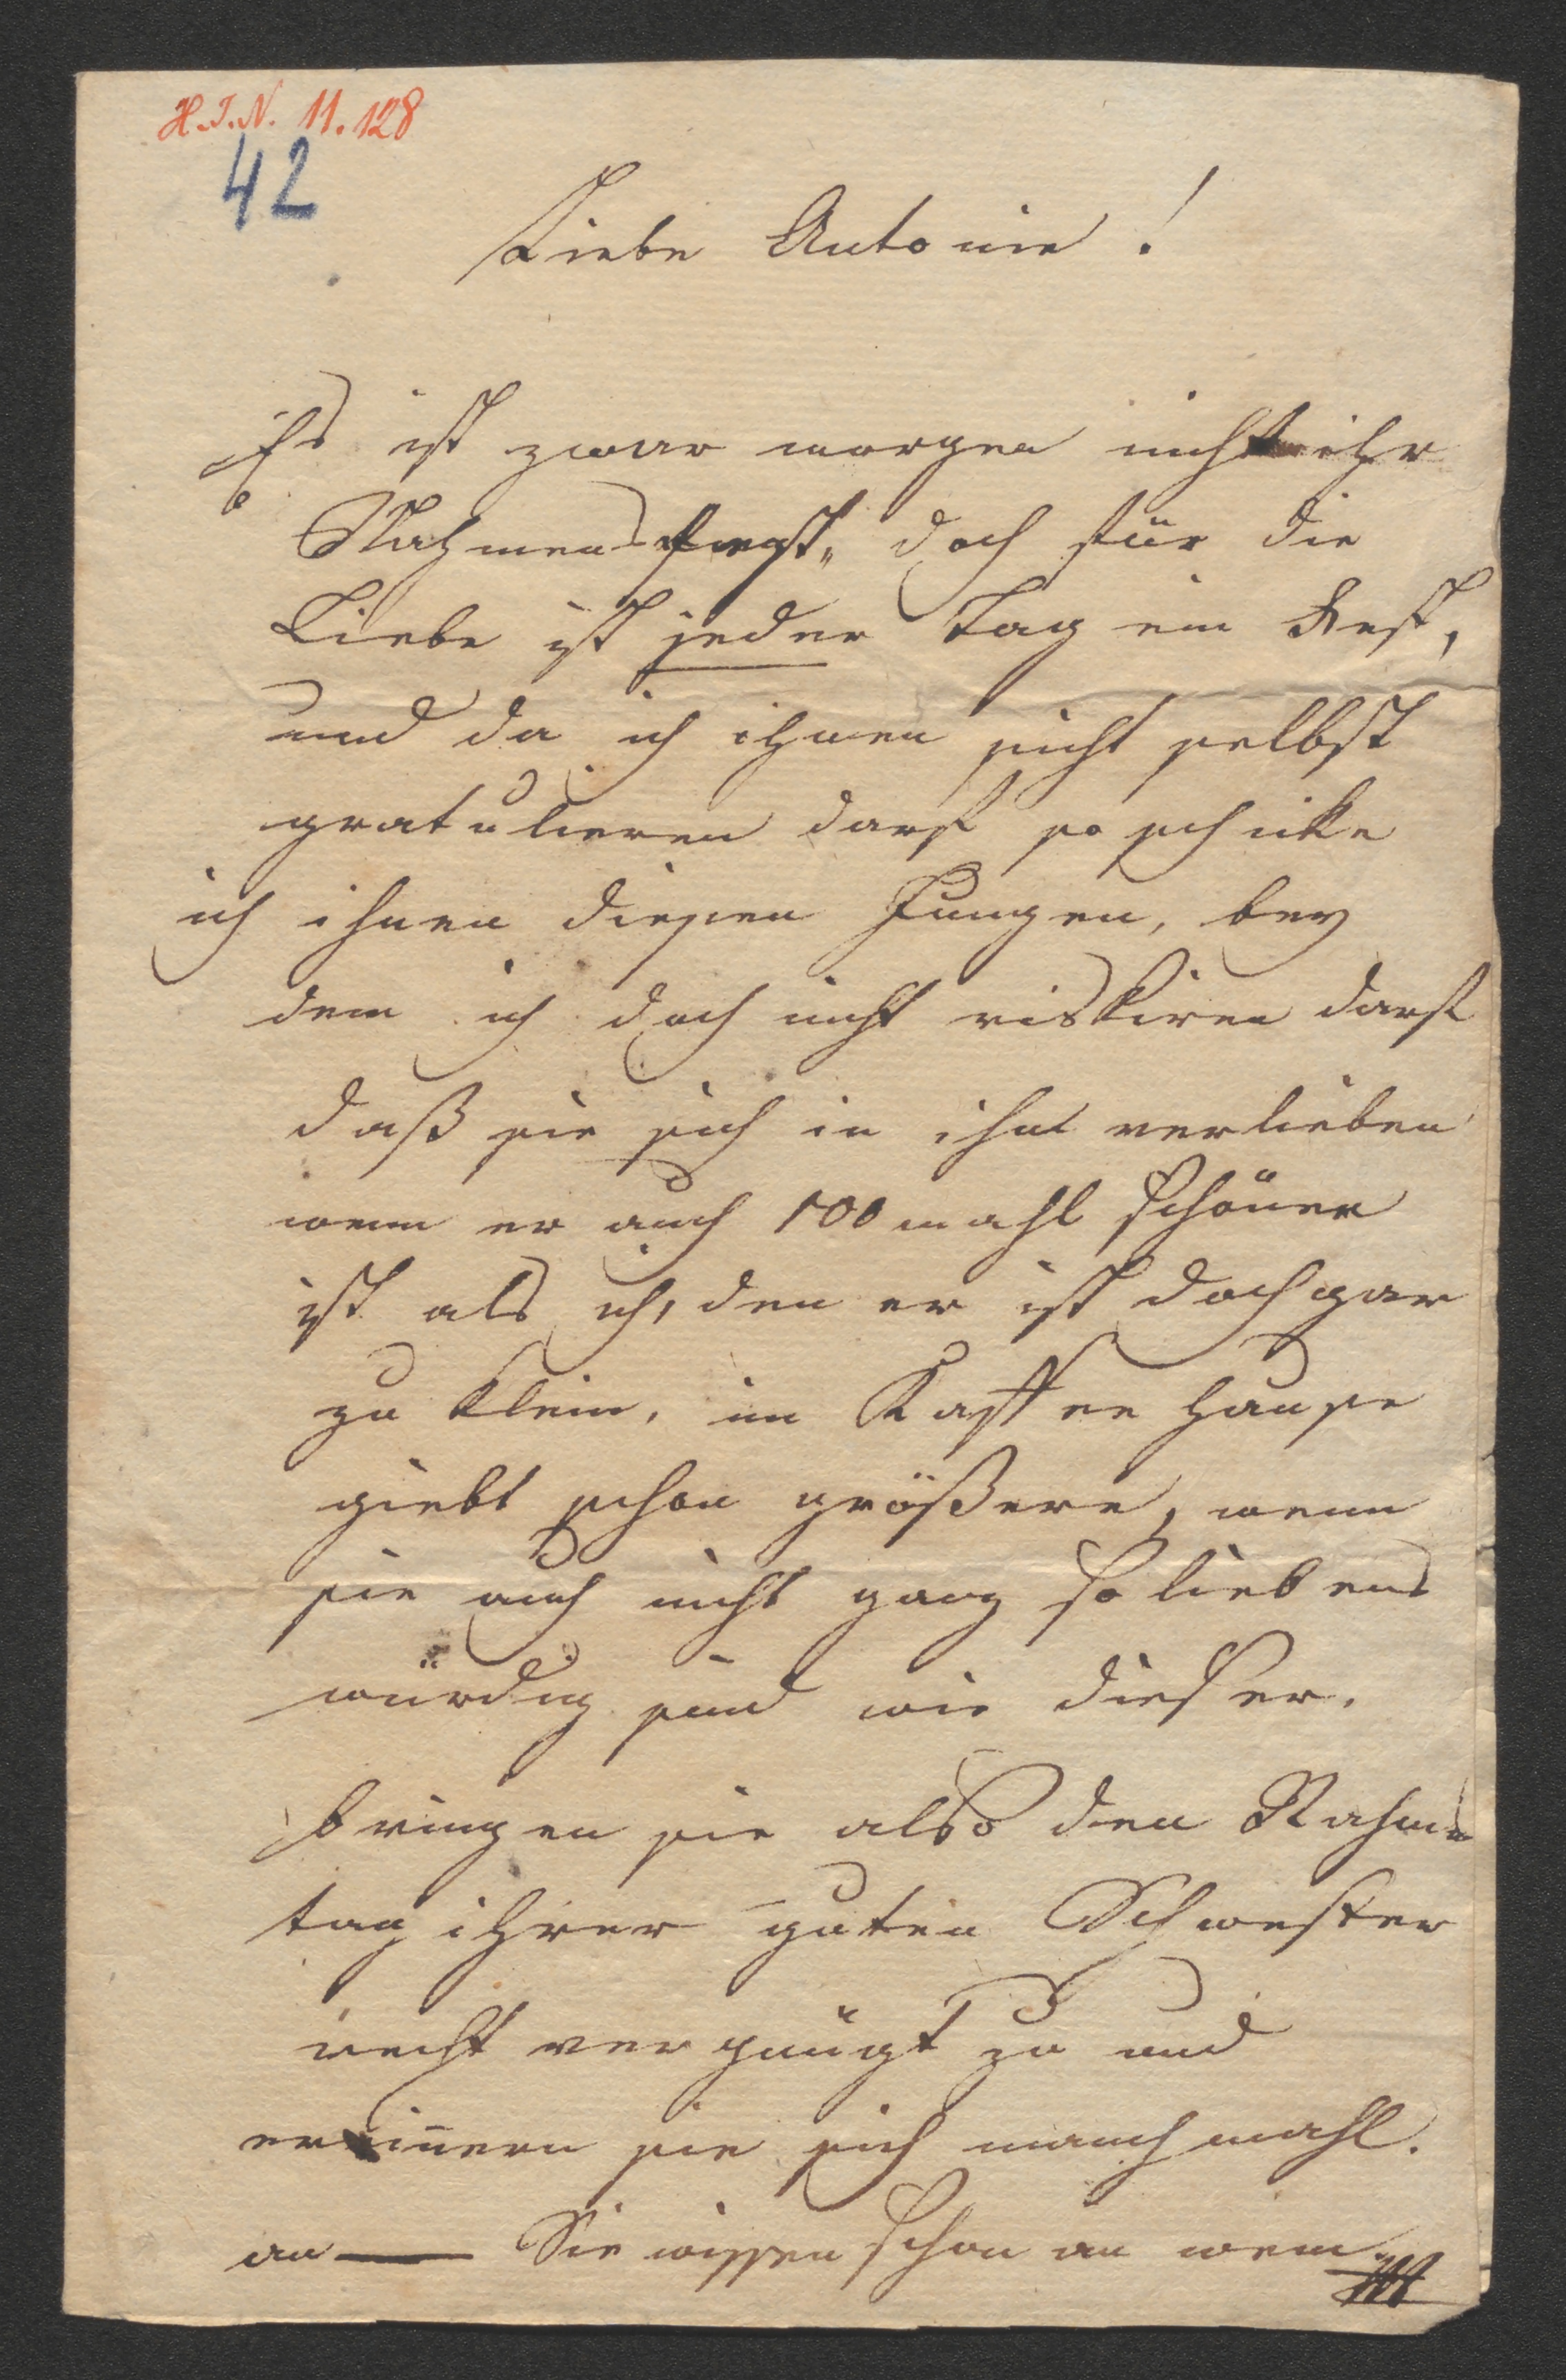 H.I.N. 11.128
42
Liebe Antonie!
Es ist zwar morgen nicht ihr
Nahmensfest, doch für die
Liebe ist jeder Tag ein Fest,
und da ich ihnen nicht selbst
gratulieren darf so schicke
ich ihnen diesen Jungen, bey
dem ich doch nicht riskiren darf
daß sie sich in ihm verlieben
wenn er auch 100 mahl schöner
ist als ich, den er ist doch gar
zu klein, im Kaffeehause
giebt schon größere, wenn
sie auch nicht ganz so liebens
würdig sind wie dieser.
bringen sie also den Nahms
tag ihrer guten Schwester
recht vergnügt zu und
erinnern sie sich manchmahl.
an — Sie wissen schon an wem